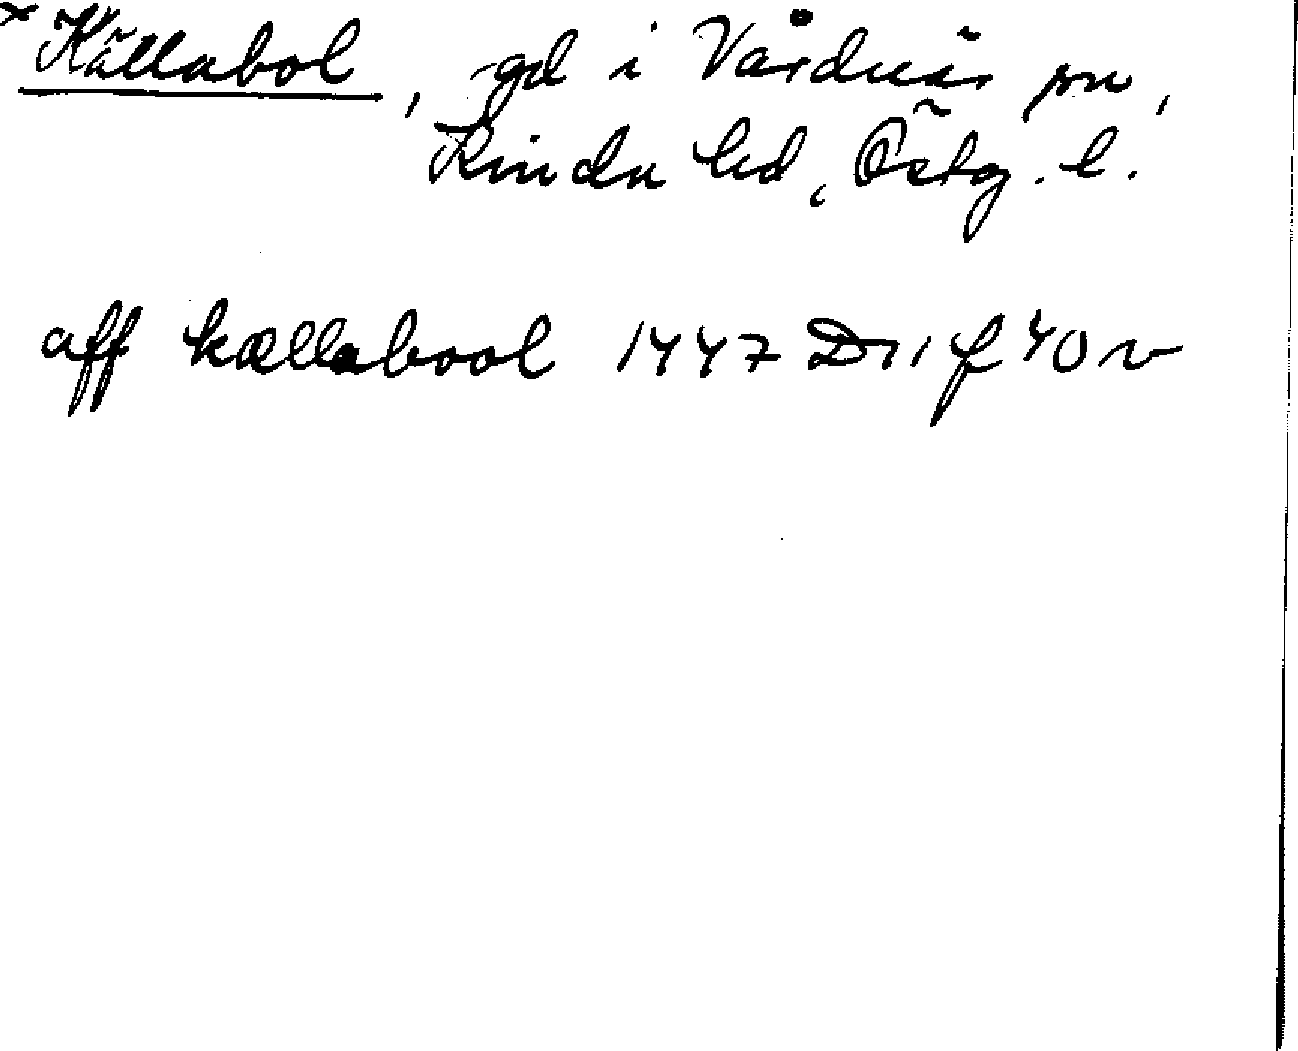 × Källabol, gd i Vårdnäs sn,
Kinda hd, Östg. l.
aff kællabool 1447 D 11 f 40 v